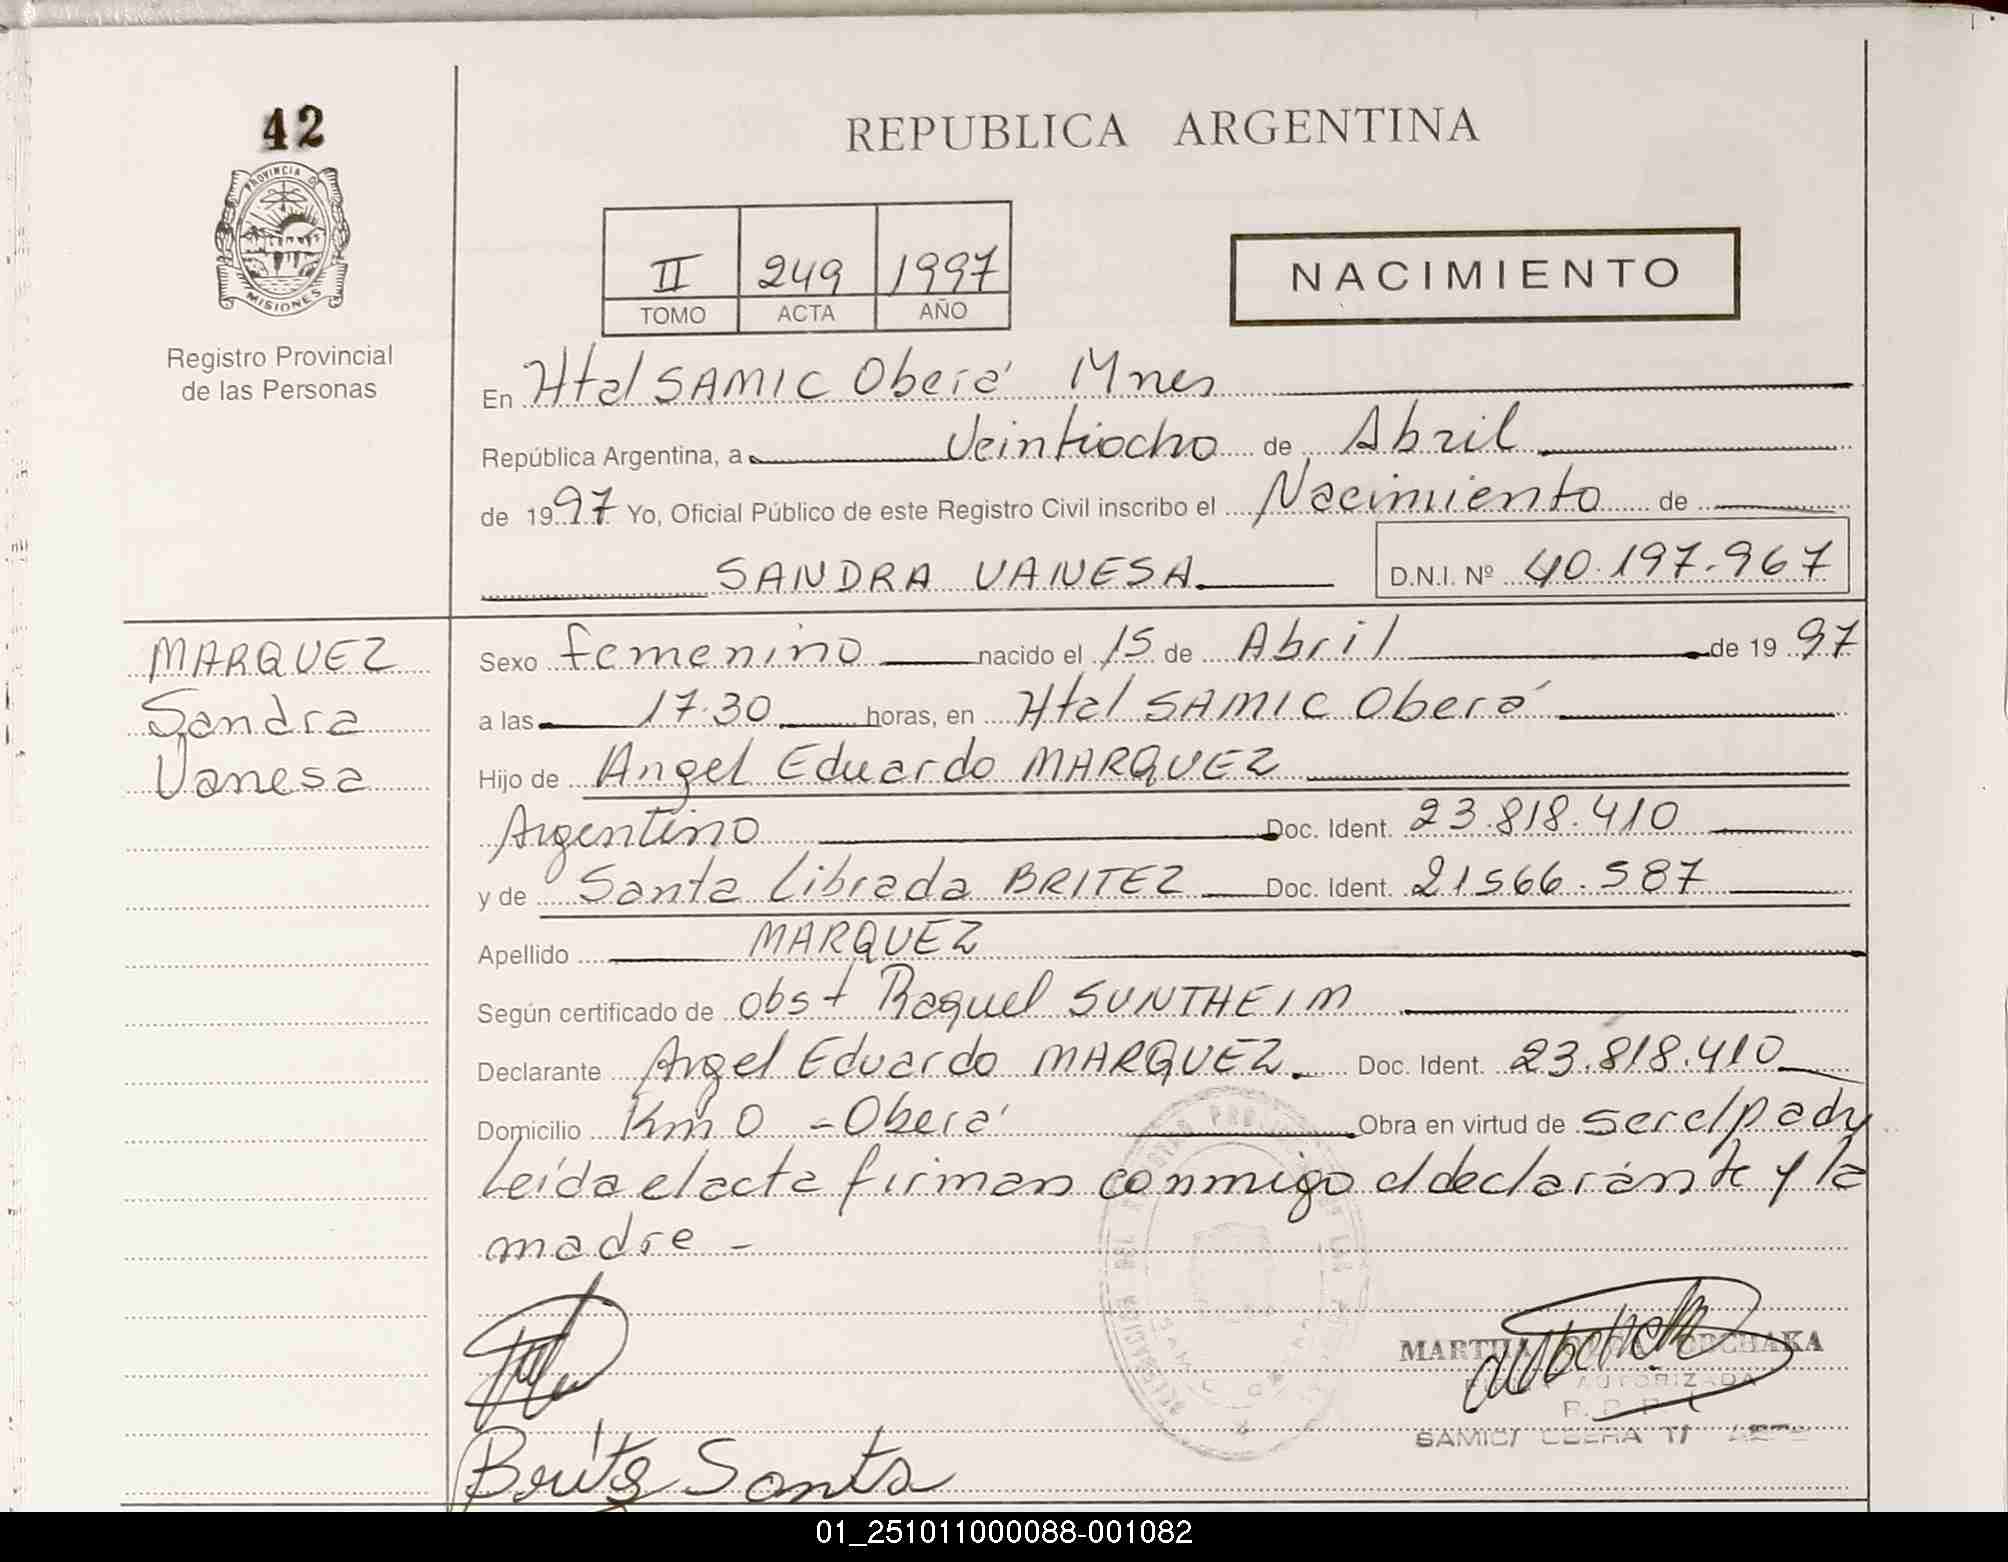 42
PROVINCIA D
MISIONES
Registro Provincial
de las Personas
REPUBLICA ARGENTINA
II 249 1997
TOMO ACTA AÑO
NACIMIENTO
En Htal SAMIC Oberá Mnes
República Argentina, a Veintiocho de Abril
de 1997 Yo, Oficial Público de este Registro Civil inscribo el Nacimiento de
SANDRA VANESA D.N.I. Nº 40.197.967
MARQUEZ
Sandra
Vanesa
Sexo femenino nacido el 15 de Abril de 1997
a las 17.30 horas, en Htal SAMIC Oberá
Hijo de Angel Eduardo MARQUEZ
Argentino Doc. Ident. 23.818.410
y de Santa Librada BRITEZ Doc. Ident. 21566.587
Apellido MARQUEZ
Según certificado de obst Raquel SUNTHEIM
Declarante Angel Eduardo MARQUEZ. Doc. Ident. 23.818.410
Domicilio Km 0 - Oberá Obra en virtud de ser el pady
Leída el acta firman conmigo el declarante y la
madre -
MARTHA
AUTORIZADA
SAMIC/
Britez Santa
01_251011000088-001082